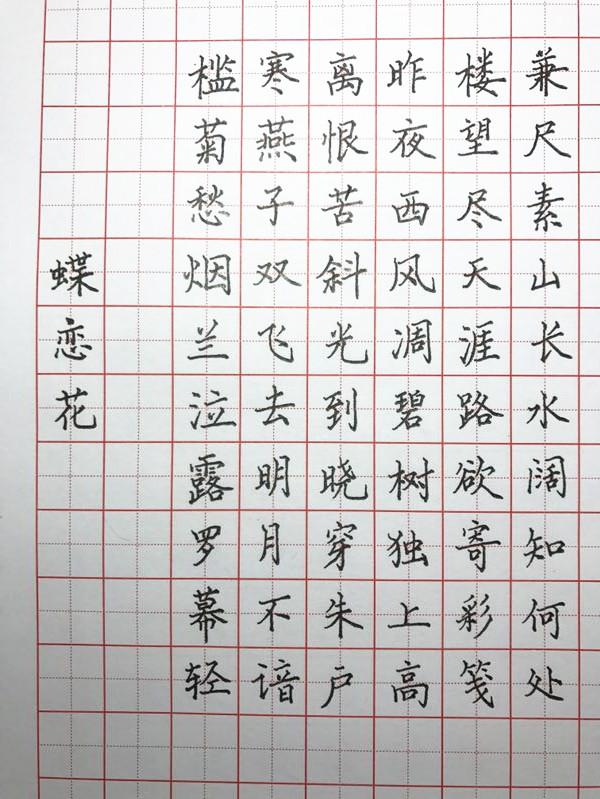 蝶恋花
槛菊愁烟兰泣露罗幕轻
寒燕子双飞去明月不谙
离恨苦斜光到晓穿朱户
昨夜西风凋碧树独上高
楼望尽天涯路欲寄彩笺
兼尺素山长水阔知何处